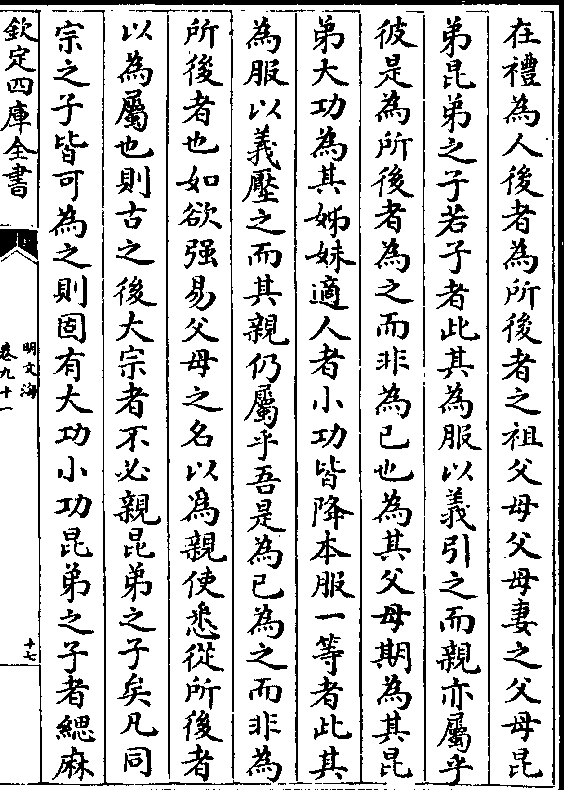 在禮為人後者為所後者之祖父母父母妻之父母昆
弟昆弟之子若子者此其為服以義引之而親亦屬乎
彼是為所後者為之而非為已也為其父母期為其昆
弟大功為其姊妹適人者小功皆降本服一等者此其
為服以義壓之而其親仍屬乎吾是為已為之而非為
所後者也如欲强易父母之名以為親使悉從所後者
以為屬也則古之後大宗者不必親昆弟之子矣凡同
宗之子皆可為之則固有大功小功昆弟之子者緦麻
欽定四庫全書
明文海
卷九十一
十七